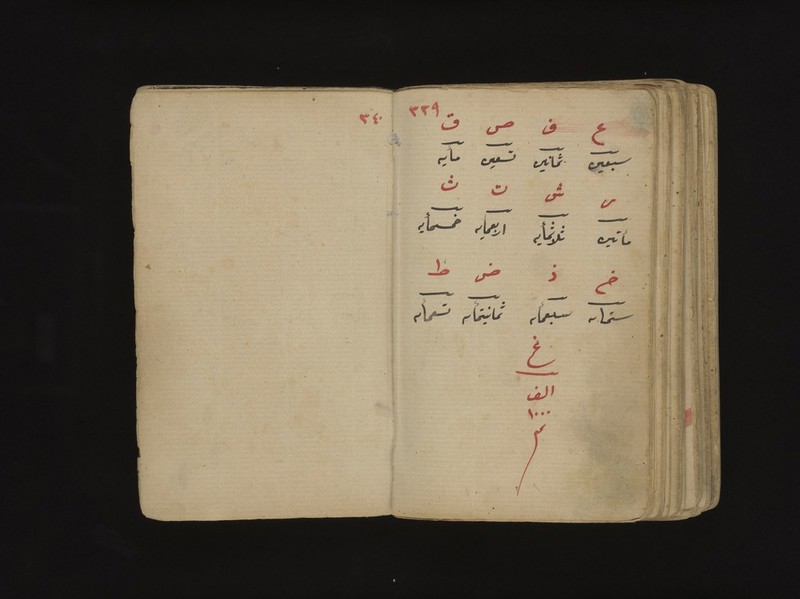 ٣٣٩
ع ف ص ق
سبعين ثمانين تسعين مايه
ر ش ت ث
ماتين ثلاثمايه اربعمايه خمسمايه
خ ذ ض ظ
ستمايه سبعمايه ثمانيتمايه تسعمايه
غ
الف
١٠٠٠
تم
٣٤٠